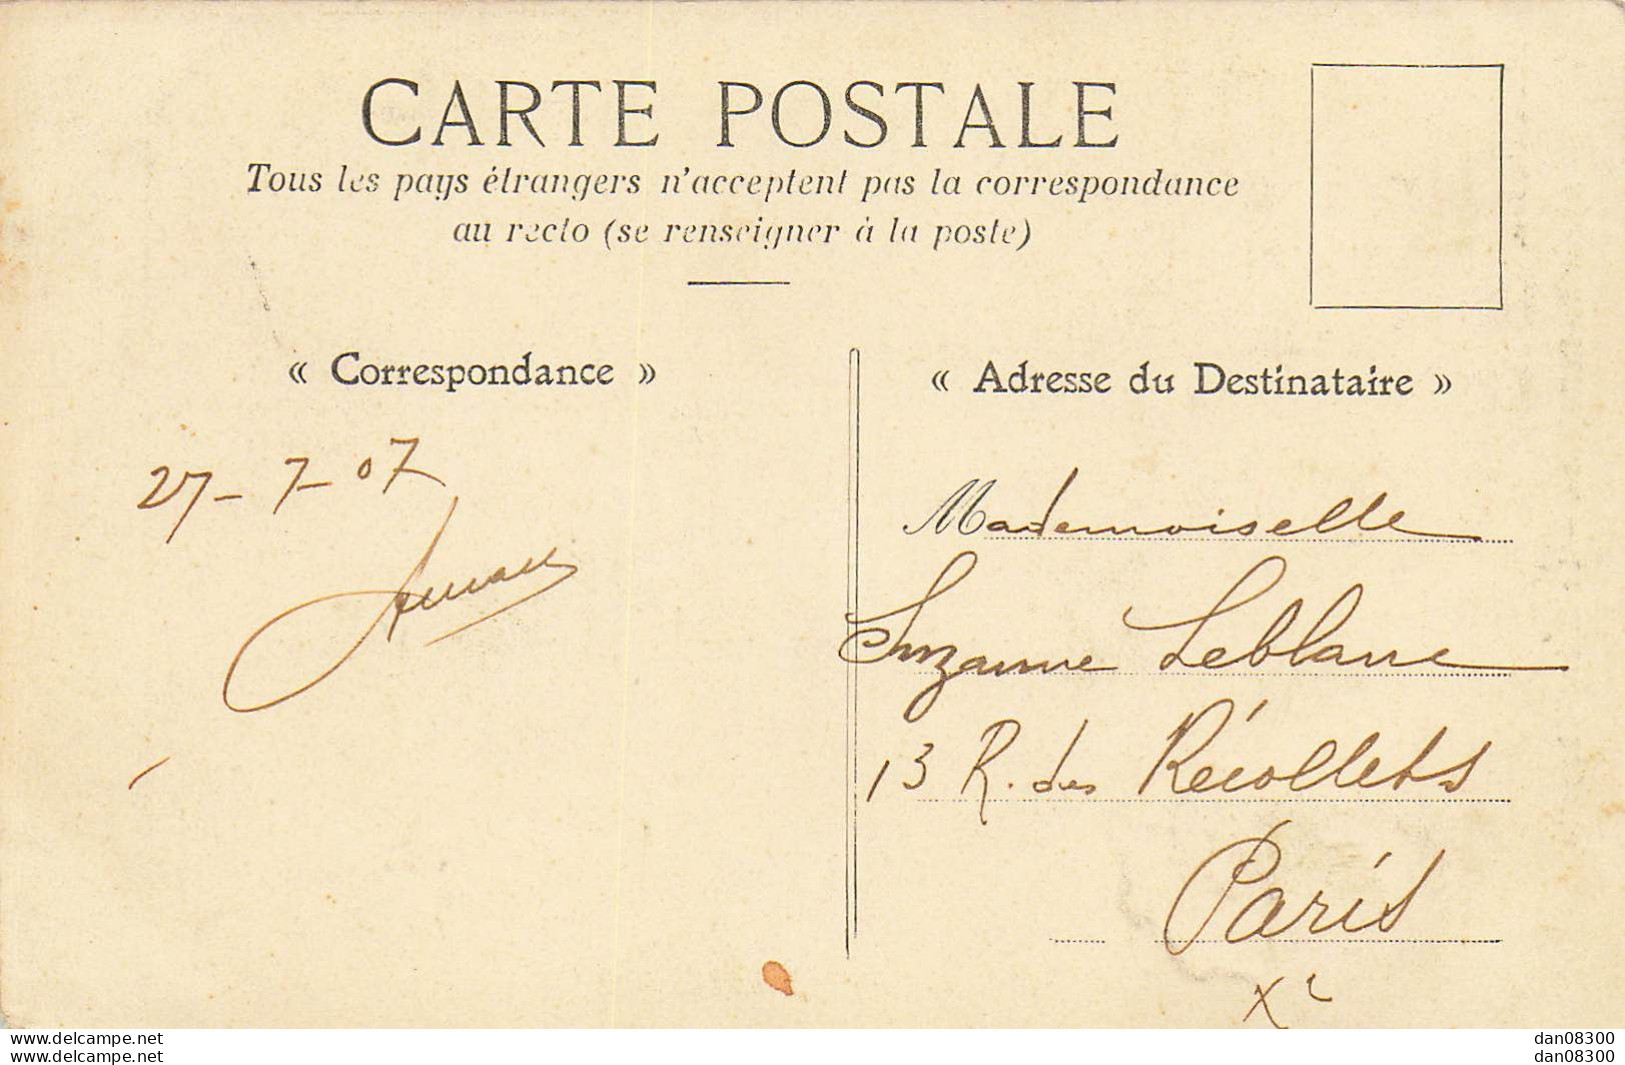 CARTE POSTALE
Tous les pays étrangers n'acceptent pas la correspondance
au recto (se renseigner à la poste)
« Correspondance »
« Adresse du Destinataire »
27-7-07
Mademoiselle
Suzanne Leblanc
13 R. des Récollets
Paris
Xe
www.delcampe.net
www.delcampe.net
dan08300
dan08300